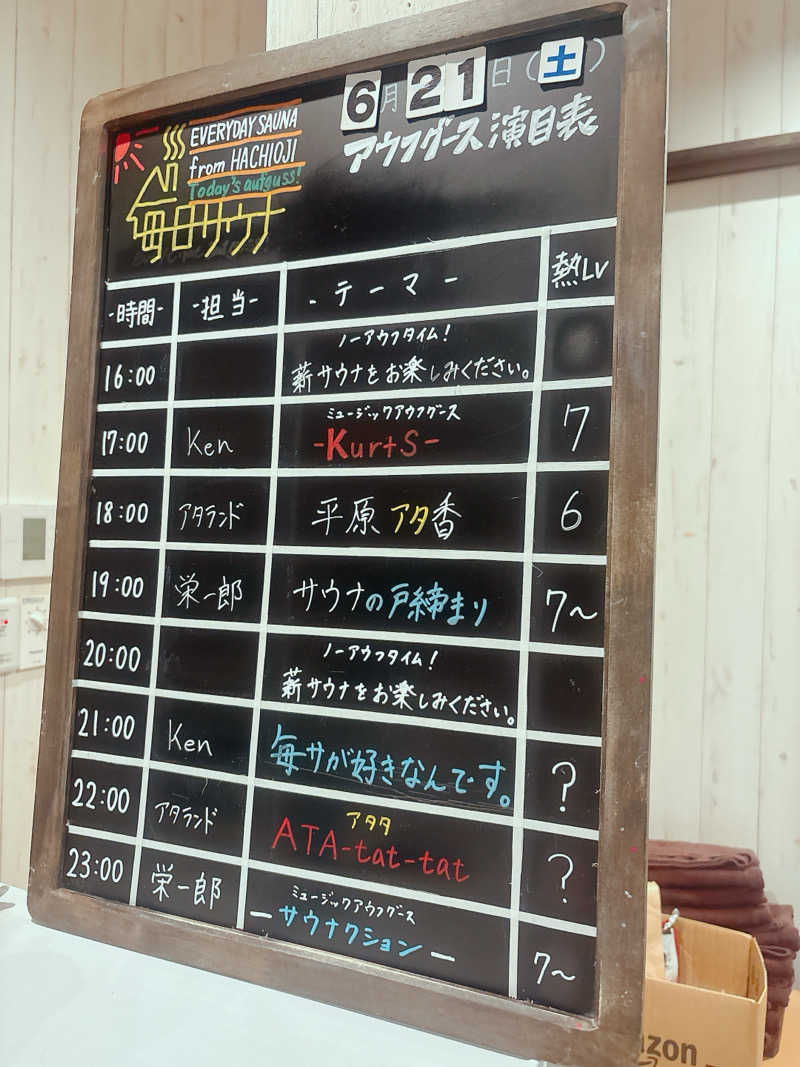 EVERYDAY SAUNA
from HACHIOJI
Today's aufguss!
毎日サウナ
6月21日(土)
アウフグース演目表
-時間- -担当- -テーマ- 熱LV
ノーアウフタイム!
16:00 薪サウナをお楽しみください。
ミュージックアウフグース
17:00 Ken -KurtS- 7
18:00 アタランド 平原アタ香 6
19:00 栄一郎 サウナの戸締まり 7~
ノーアウフタイム!
20:00 薪サウナをお楽しみください。
21:00 Ken 毎サが好きなんです。 ?
アタタ
22:00 アタランド ATA-tat-tat ?
ミュージックアウフグース
23:00 栄一郎 -サウナクション- 7~